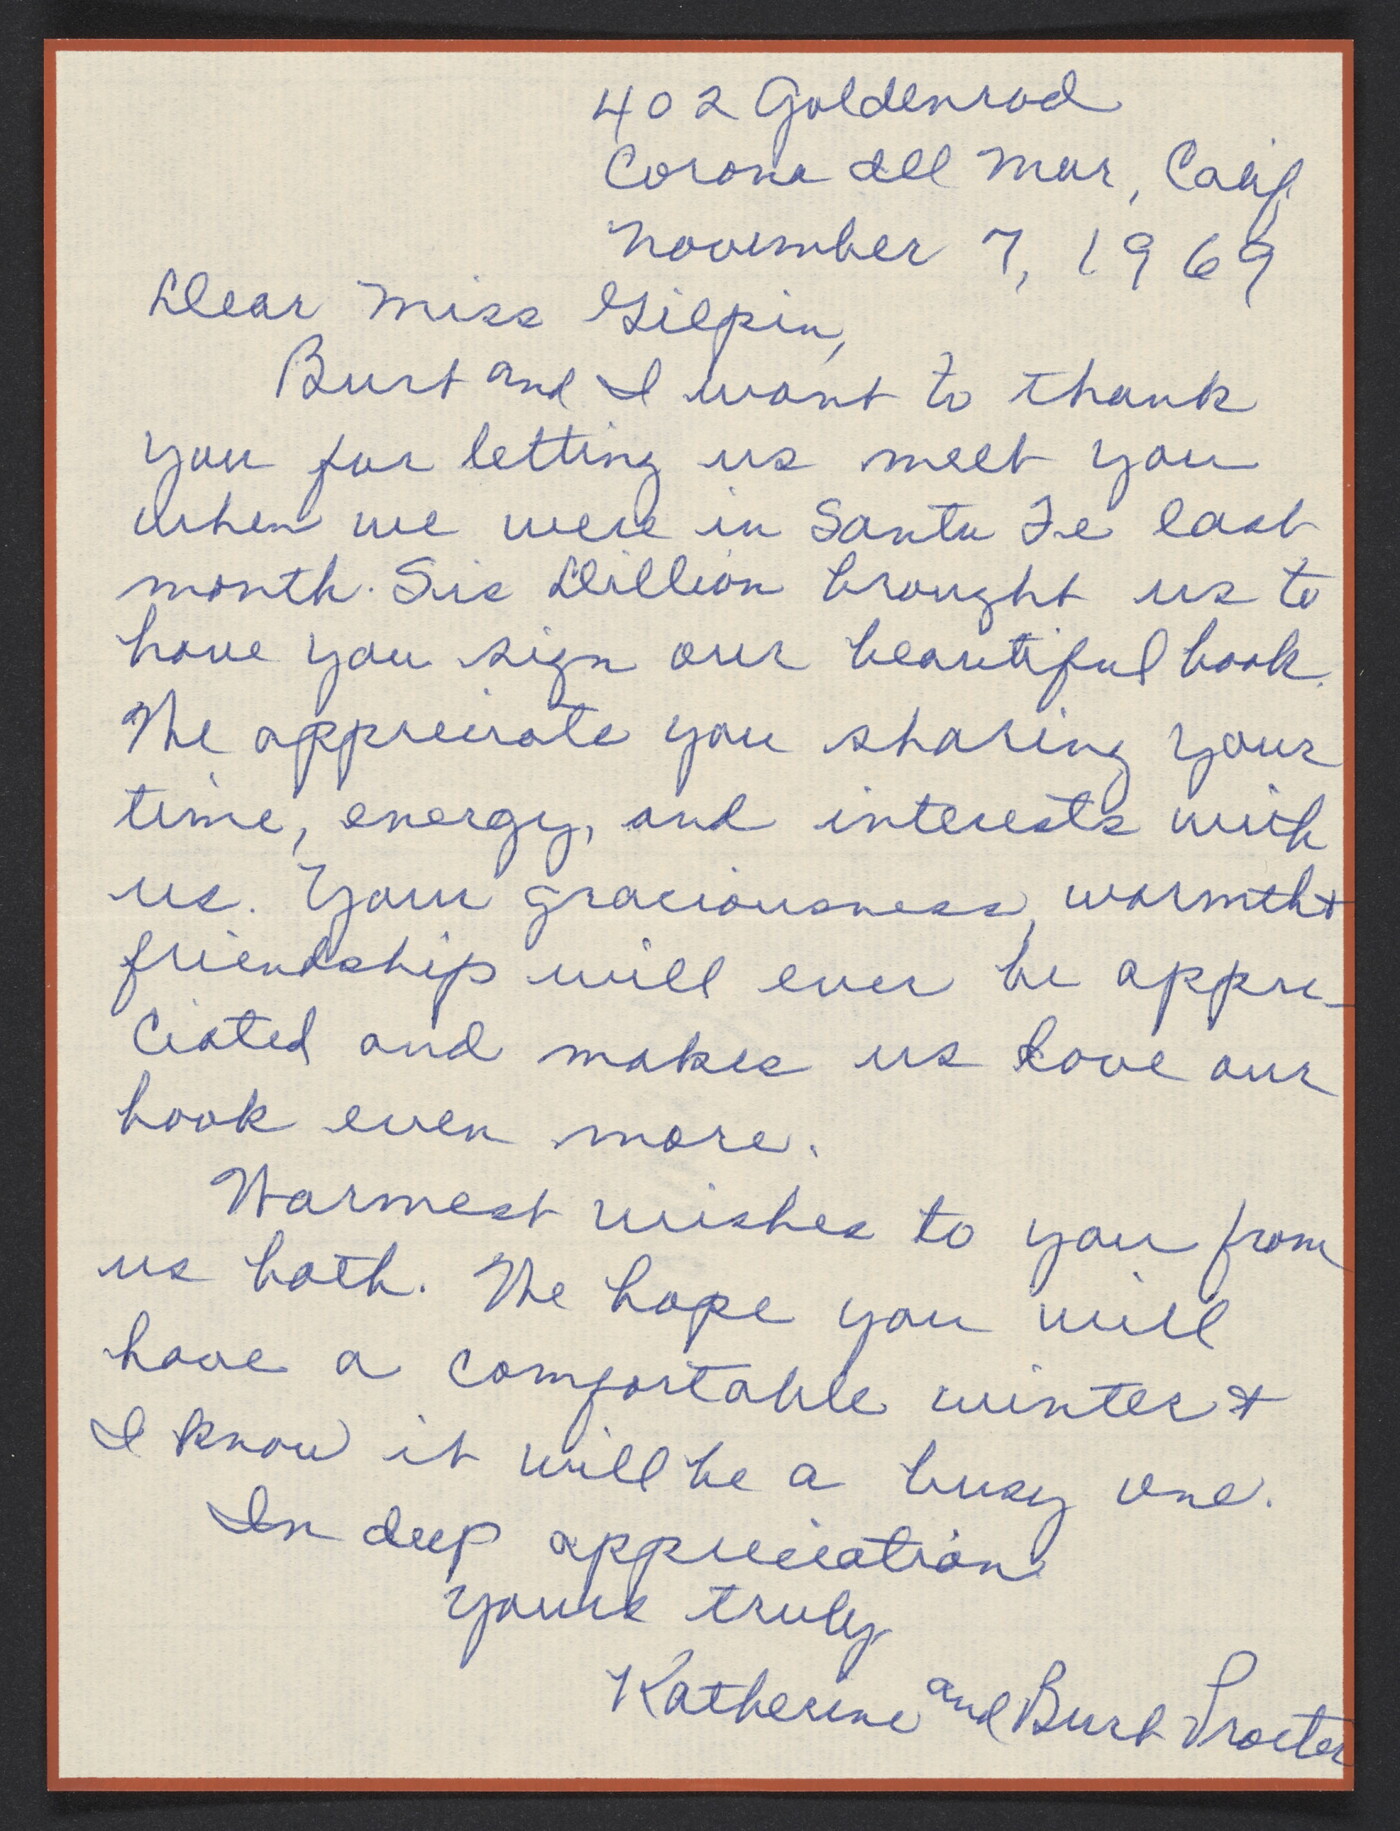 402 Goldenrod
Corona del Mar, Calif
November 7, 1969
Dear Miss Gilpin,
Burt and I want to thank
you for letting us meet you
when we were in Santa Fe last
month. Sis Dillion brought us to
have you sign our beautiful book.
We appreciate you sharing your
time, energy, and interests with
us. Your graciousness, warmth &
friendship will ever be appre-
ciated and makes us love our
book even more.
Warmest wishes to you from
us both. We hope you will
have a comfortable winter &
I know it will be a busy one.
In deep appreciation
Yours truly
Katherine and Burt Procter